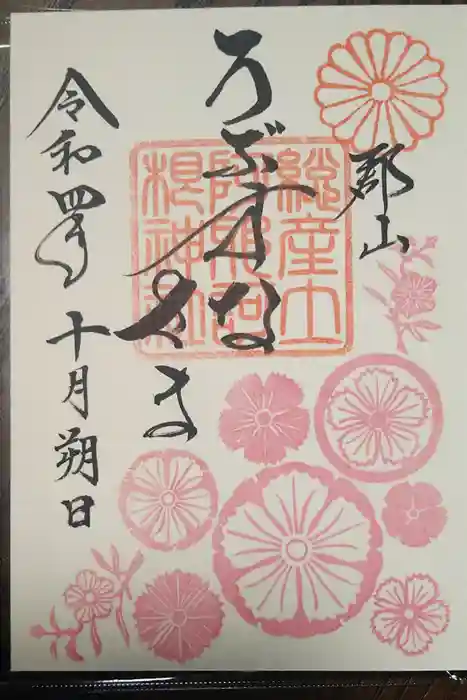 郡山
うぶすな
さま
総産土
阿邪訶
根神社
令和四年 十月朔日